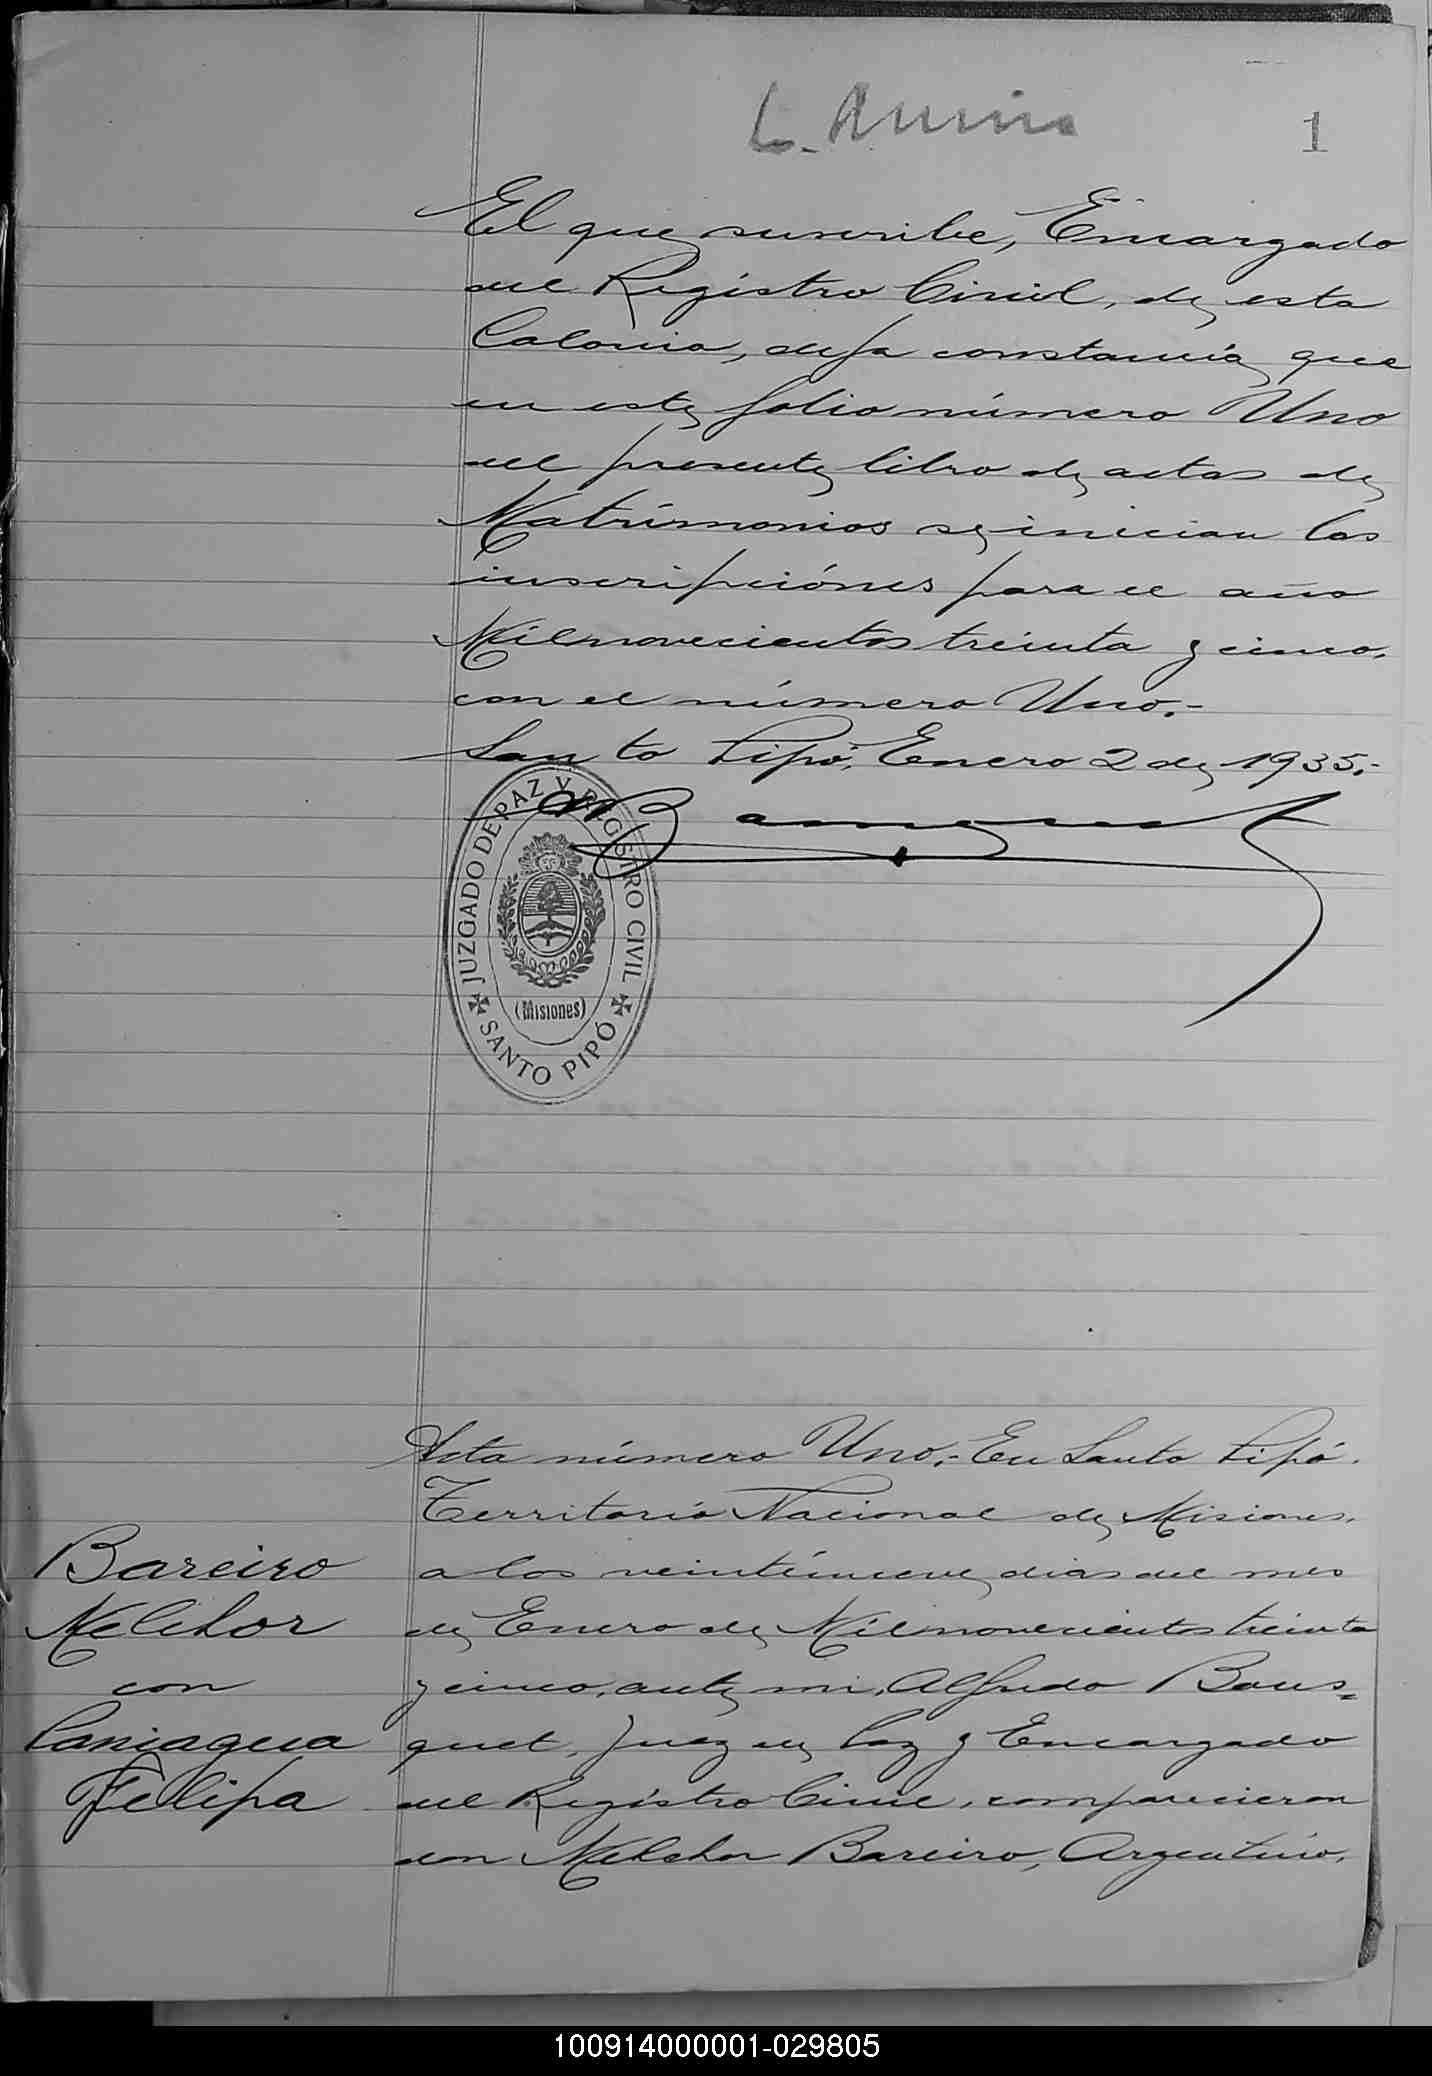 1
El que suscribe, Encargado
del Registro Civil, de esta
Colonia, deja constancia que
en este folio número Uno
del presente libro de actas de
Matrimonios se inician las
inscripciónes para el año
Milnovecientos treinta y cinco,
con el número Uno.-
Santo Pipó, Enero 2 de 1935.-
JUZGADO DE PAZ Y REGISTRO CIVIL
(Misiones)
SANTO PIPÓ
Acta número Uno.- En Santo Pipó.
Territorio Nacional de Misiones,
a los veintinueve dias del mes
de Enero de Milnovecientos treinta
y cinco, ante mi, Alfredo Bous=
quet, Juez de Paz y Encargado
del Registro Civil, comparecieron
don Melchor Bareiro, Argentino,
Bareiro
Melchor
con
Paniagua
Felipa
100914000001-029805